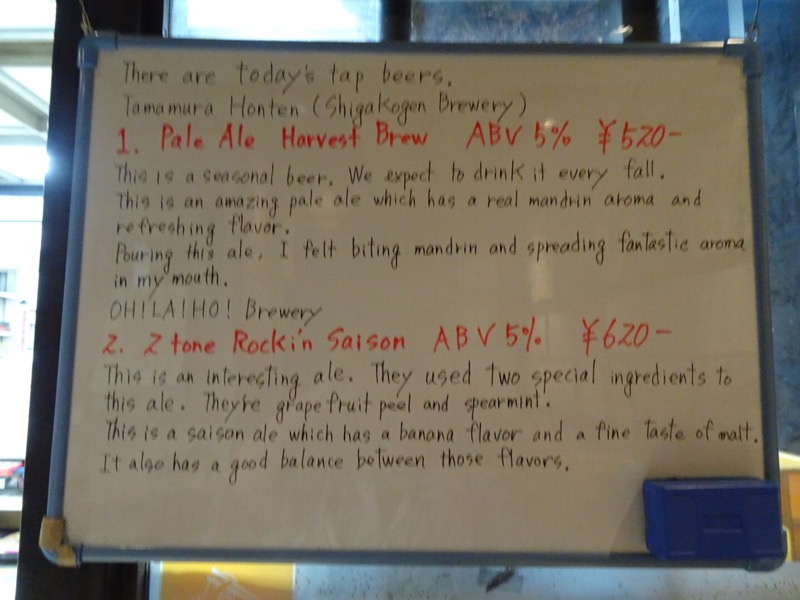 There are today's tap beers.
Tamamura Honten (Shigakogen Brewery)
1. Pale Ale Harvest Brew ABV 5% ¥520-
This is a seasonal beer. We expect to drink it every fall.
This is an amazing pale ale which has a real mandrin aroma and
refreshing flavor.
Pouring this ale, I felt biting mandrin and spreading fantastic aroma
in my mouth.
OH!LA!HO! Brewery
2. 2 tone Rockin' Saison ABV 5% ¥620-
This is an interesting ale. They used two special ingredients to
this ale. They're grapefruit peel and spearmint.
This is a saison ale which has a banana flavor and a fine taste of malt.
It also has a good balance between those flavors.